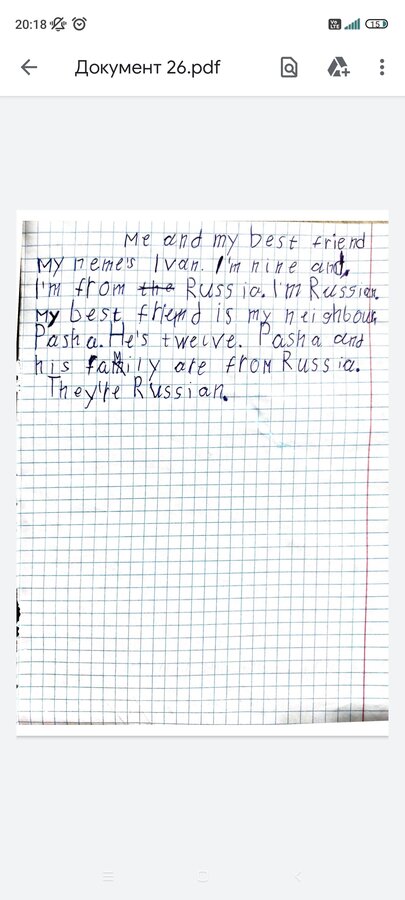 20:18
15
Документ 26.pdf
Me and my best friend
My neme's Ivan. I'm nine and.
I'm from the Russia. I'm Russian.
My best friend is my neighbour
Pasha. He's twelve. Pasha and
his family are from Russia.
They're Russian.